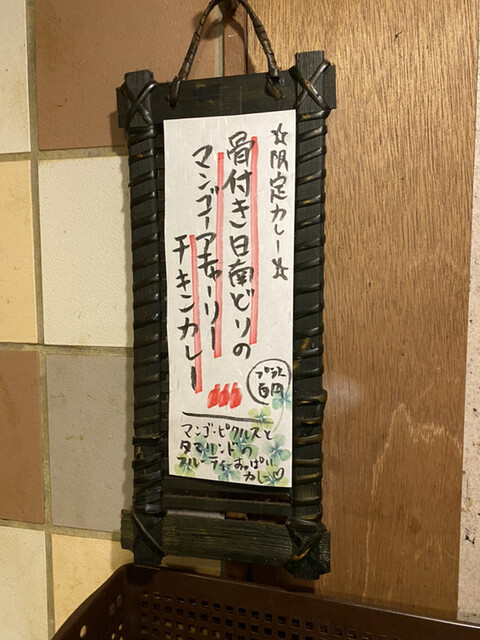 ☆限定カレー☆
骨付き日南どりの
マンゴーアチャーリー
チキンカレー
プラス
百円
マンゴーピクルスと
タマリンドの
フルーティーすっぱい
カレー♡